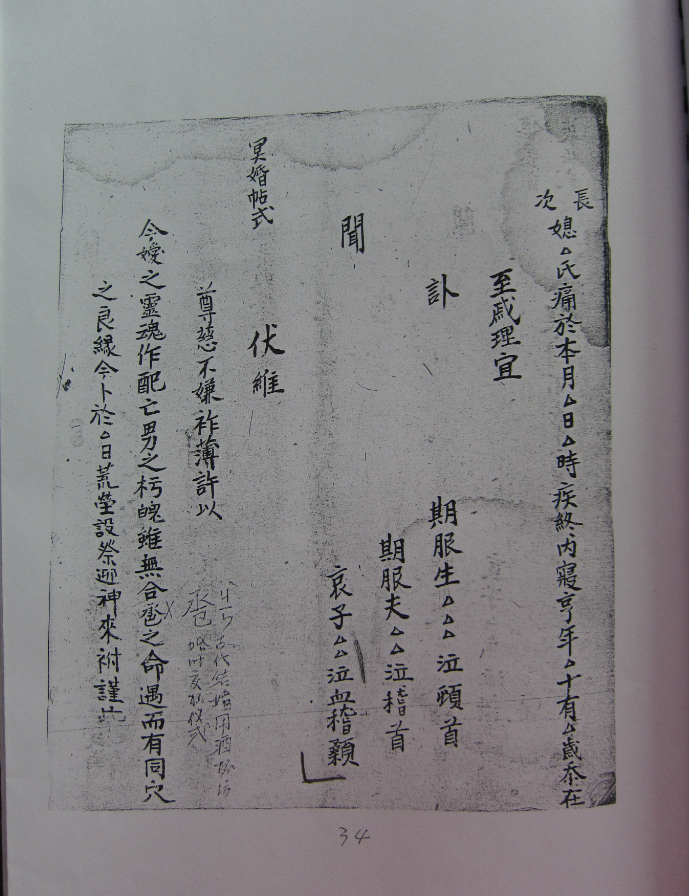 長
次
媳△氏痛於本月△日△時疾終內寢亨年△十有△歳忝在
至戚理宜
訃
期服生△△△泣頓首
期服夫△△泣稽首
聞
哀子△△泣血稽顙
冥婚帖式
伏維
尊慈不嫌祚薄許以
令嬡之靈魂作配亡男之朽魄雖無合卺之命遇而有同穴
之良緣今卜於△日荒塋設祭迎神來祔謹此
古代结婚用酒
34